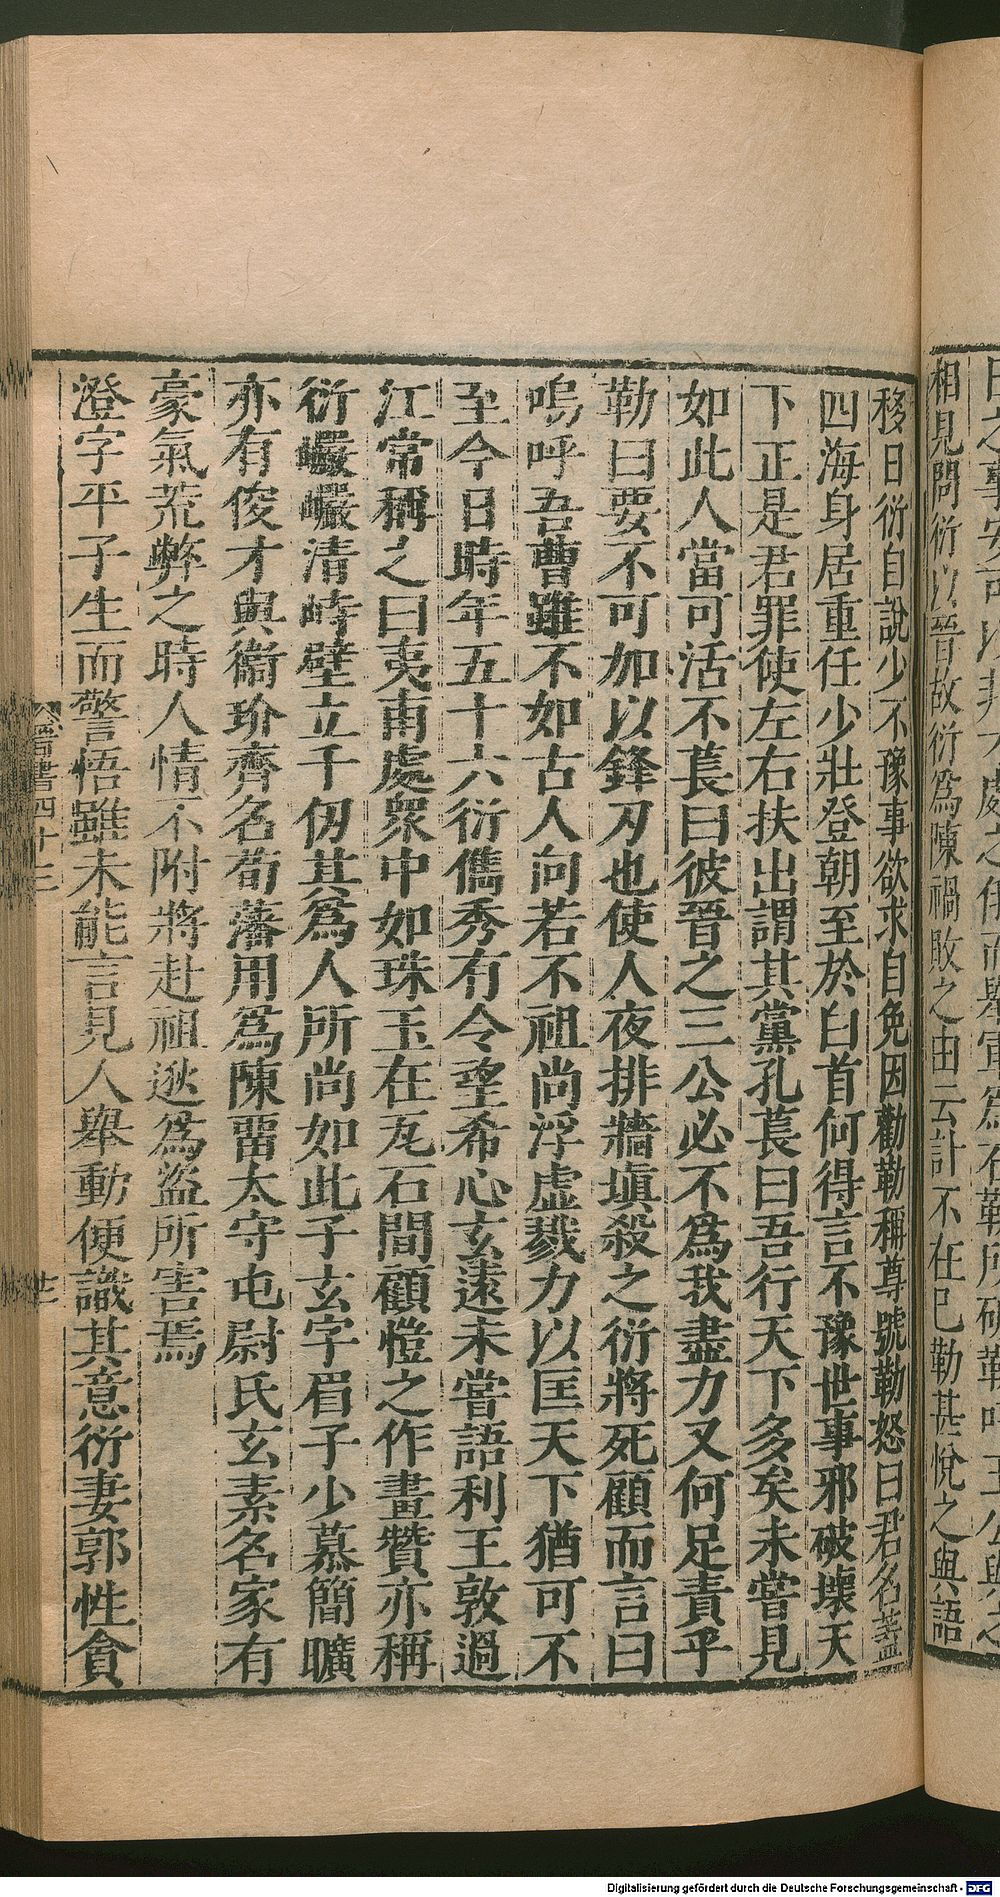 相見問衍以晉故衍爲陳禍敗之由云計不在巳勒甚悅之與語
移日衍自說少不豫事欲求自免因勸勒稱尊號勒怒曰君名蓋
四海身居重任少壯登朝至於白首何得言不豫世事邪破壞天
下正是君罪使左右扶出謂其黨孔萇曰吾行天下多矣未嘗見
如此人當可活不萇曰彼晉之三公必不爲我盡力又何足責乎
勒曰要不可加以鋒刃也使人夜排牆塡殺之衍將死顧而言曰
嗚呼吾曹雖不如古人向若不祖尚浮虛戮力以匡天下猶可不
至今日時年五十六衍儁秀有令望希心玄遠未嘗語利王敦過
江常稱之曰夷甫處衆中如珠玉在瓦石間顧愷之作畫贊亦稱
衍巖巖清峙壁立千仞其爲人所尚如此子玄字眉子少慕簡曠
亦有俊才與衞玠齊名荀藩用爲陳畱太守屯尉氏玄素名家有
豪氣荒弊之時人情不附將赴祖逖爲盜所害焉
澄字平子生而警悟雖未能言見人舉動便識其意衍妻郭性貪
晉書四十三
Digitalisierung gefördert durch die Deutsche Forschungsgemeinschaft - DFG